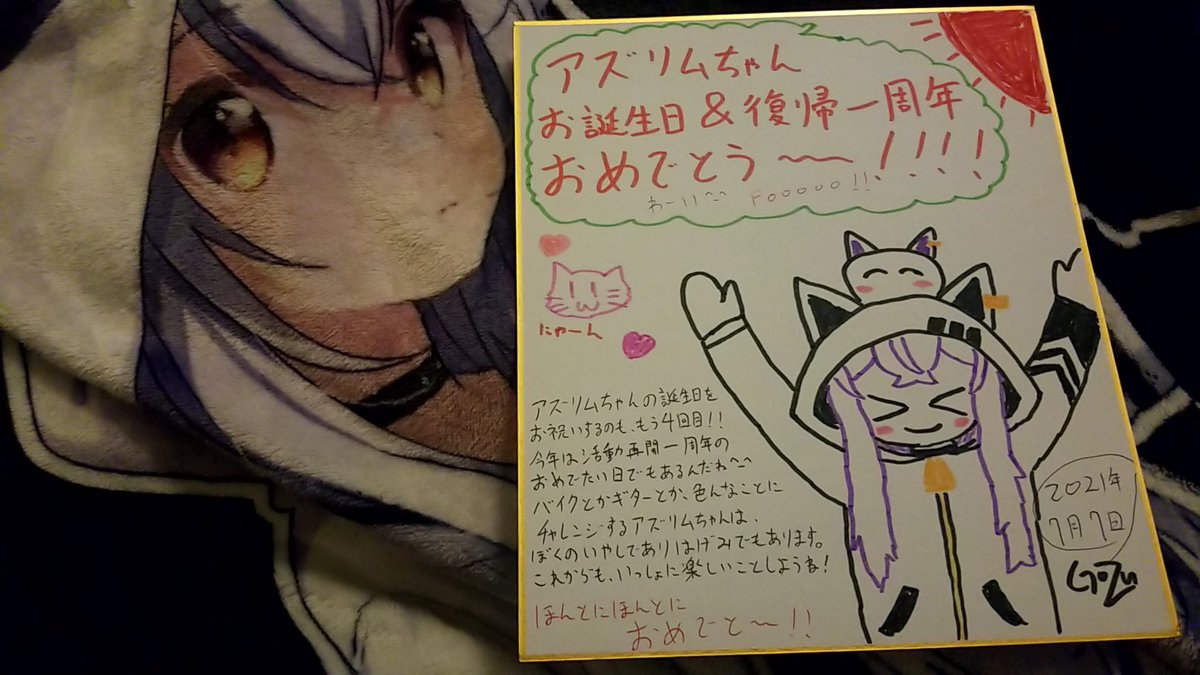 アズリムちゃん
お誕生日&復帰一周年
おめでとう〜!!!!
わーい^-^ FOOOOO!!
にゃーん
アズリムちゃんの誕生日を
お祝いするのも、もう4回目!!
今年は活動再開一周年の
おめでたい日でもあるんだね^-^
バイクとかギターとか、色んなことに
チャレンジするアズリムちゃんは、
ぼくのいやしでありはげみでもあります。
これからも、いっしょに楽しいことしようね!
ほんとにほんとに
おめでと〜!!
2021年
7月7日
GoZu